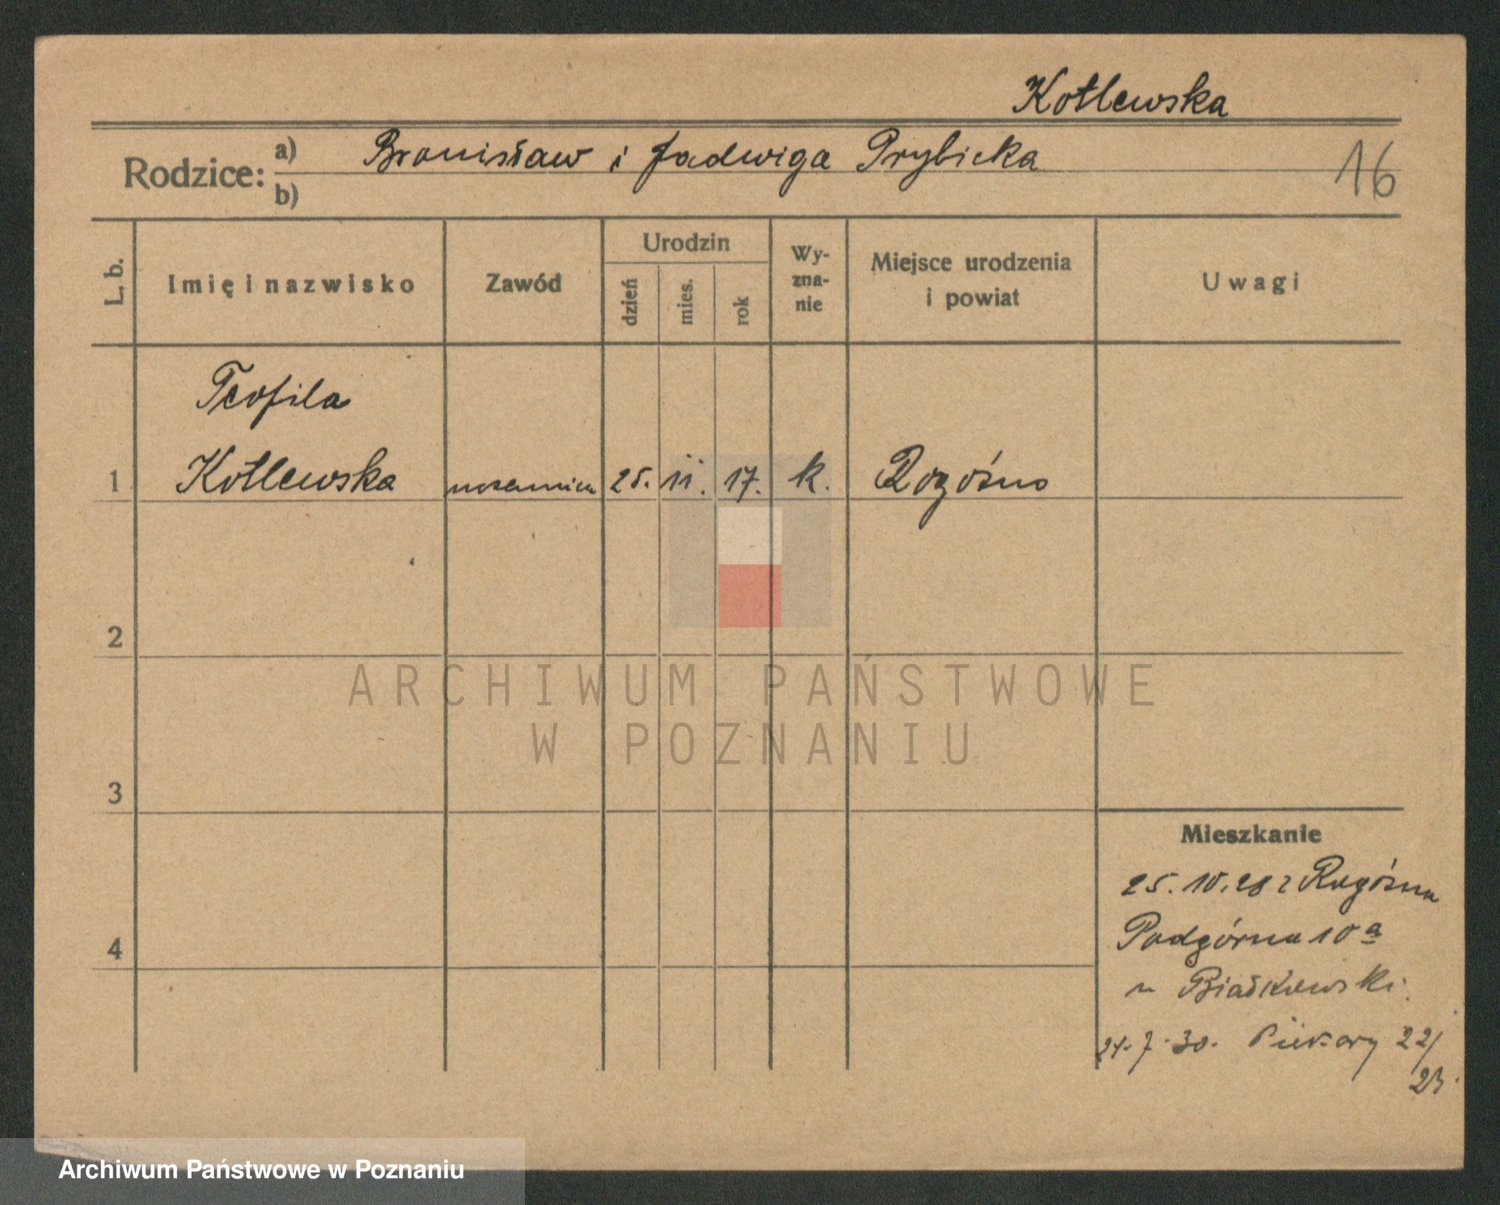 Kotlewska
Rodzice: a) Bronisław i Jadwiga Prybicka
b)
16
L. b.
Imię i nazwisko
Zawód
Urodzin
dzień
mies.
rok
Wy-
zna-
nie
Miejsce urodzenia
i powiat
Uwagi
Teofila
1 Kotlewska uczennica 25. 11. 17. k. Rogóźno
2
3
4
ARCHIWUM PAŃSTWOWE
W POZNANIU
Mieszkanie
25.10.28 z Rogóźna
Podgórna 10a
u Białkowski.
24.7.30. Piekary 22/
23.
Archiwum Państwowe w Poznaniu